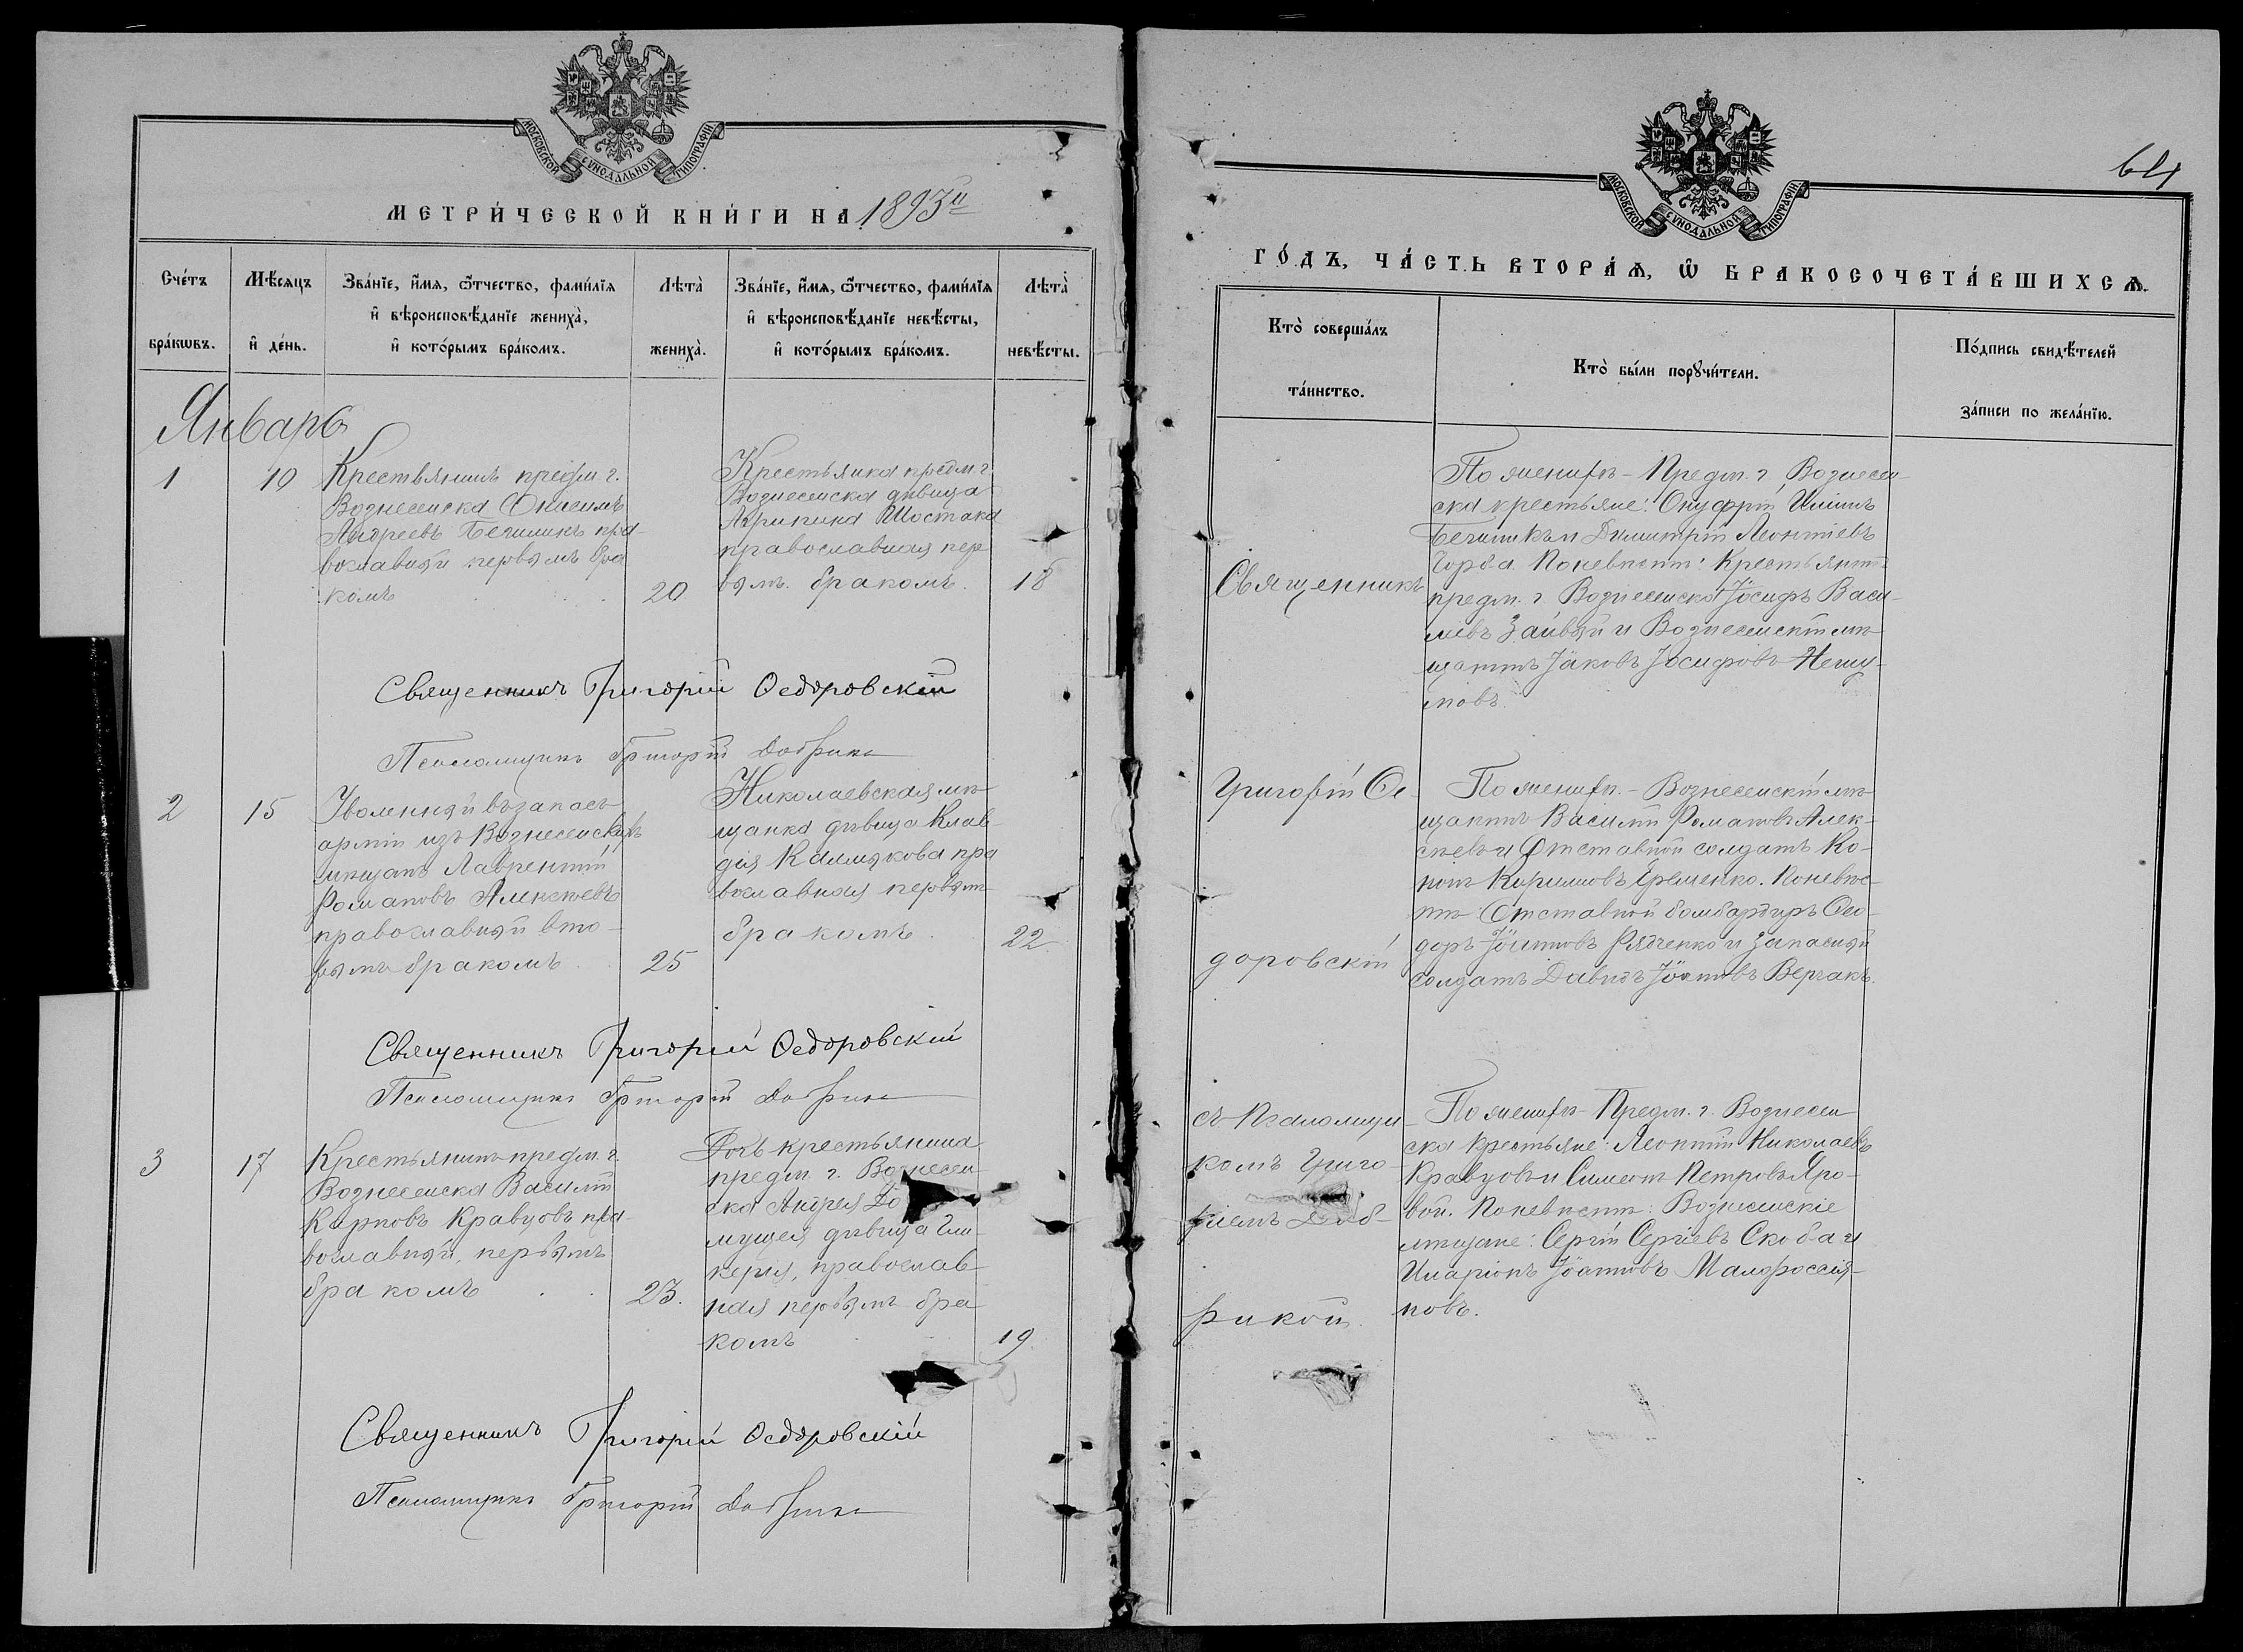 МОСКОВСКОЙ СѴНОДАЛЬНОЙ ТИПОГРАФІИ
МЕТРИ́ЧЕСКОЙ КНИ́ГИ НА 1893й
Сче́тъ бра́кѡвъ.
Мѣ́сяцъ и҆ де́нь.
Зва́нїе, и҆́мѧ, ѻ҆́тчество, фами́лїѧ
и҆ вѣроисповѣ́данїе жениха̀,
и҆ кото́рымъ бра́комъ.
Лѣта̀ жениха̀.
Зва́нїе, и҆́мѧ, ѻ҆́тчество, фами́лїѧ
и҆ вѣроисповѣ́данїе невѣ́сты,
и҆ кото́рымъ бра́комъ.
Лѣта̀ невѣ́сты.
Январь
1
10
Крестьянинъ предм. г.
Вознесенска Онисимъ
Андреевъ Бечишкъ пра-
вославный первымъ бра
комъ
20
Крестьянка предм. г.
Вознесенска дѣвица
Акрипина Шостака
православная пер
вымъ бракомъ.
18
Священникъ Григорій Ѳедоровскій
Псаломщикъ Григорій Добрика
2
15
Уволенный въ запасъ
арміи изъ Вознесенскихъ
мѣщанъ Лаврентій
Романовъ Алексѣевъ
православный вто-
рымъ бракомъ
25
Николаевская мѣ-
щанка дѣвица Клав-
дія Калмыкова пра
вославная первымъ
бракомъ
22
Священникъ Григорій Ѳедоровскій
Псаломщикъ Григорій Добрика
3
17
Крестьянинъ предм. г.
Вознесенска Василій
Карповъ Кравцовъ пра-
вославный, первымъ
бракомъ
23.
Дочь крестьянина
предм. г. Вознесен-
ска Андрея До
дѣвица Гли-
керія, православ-
ная первымъ бра
комъ
19
Священникъ Григорій Ѳедоровскій
Псаломщикъ Григорій Добрика
64
МОСКОВСКОЙ СѴНОДАЛЬНОЙ ТИПОГРАФІИ
ГО́ДЪ, ЧА́СТЬ ВТОРА́Ѧ, Ѡ҆ БРАКОСОЧЕТА́ВШИХСѦ.
Кто̀ соверша́лъ та́инство.
Кто̀ бы́ли порꙋчи́тели.
По́дпись свидѣ́телей
за́писи по жела́нїю.
Священникъ
Григорій Ѳе-
доровскій
съ Псаломщи-
комъ Григо-
ріемъ Доб-
рикой
По женихѣ - Предм. г. Вознесен-
ска крестьяне: Онуфрій Ильинъ
Бечишкъ и Димитрій Леонтіевъ
Горба. По невѣстѣ: Крестьянинъ
предм. г. Вознесенска Іосифъ Васи-
льевъ и Вознесенскій мѣ-
щанинъ Іаковъ Іосифовъ Нешу-
мовъ.
По женихѣ. - Вознесенскій мѣ-
щанинъ Василій Романовъ Алек-
сѣевъ и Отставной солдатъ Ко-
нонъ Кирилловъ Ефименко. По невѣс-
тѣ - Отставной бомбардиръ Ѳео-
доръ Іоанновъ Рядченко и Запасный
солдатъ Давидъ Іоанновъ Верчакъ.
По женихѣ - Предм. г. Вознесен-
ска крестьяне: Леонтій Николаевъ
Кравцовъ и Симеонъ Петровъ Яро-
вой. По невѣстѣ: Вознесенскіе
мѣщане: Сергій Сергіевъ Скоба и
Иларіонъ Іоанновъ Малороссія-
новъ.